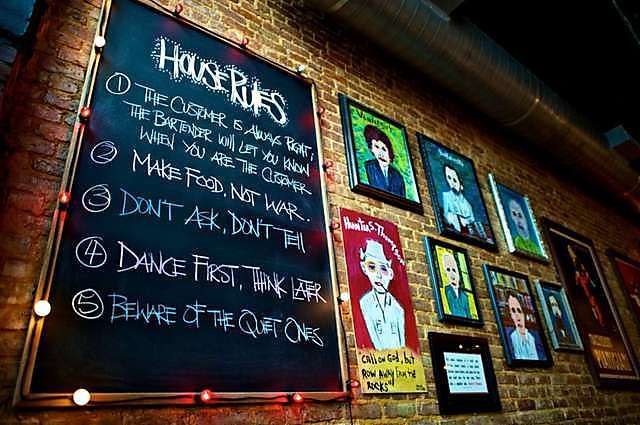 HOUSE RULES
① THE CUSTOMER IS ALWAYS RIGHT;
THE BARTENDER WILL LET YOU KNOW
WHEN YOU ARE THE CUSTOMER
② MAKE FOOD, NOT WAR.
③ DONT ASK, DON'T TELL
④ DANCE FIRST, THINK LATER
⑤ BEWARE OF THE QUIET ONES
HUNTER S. THOMPSON
CALL ON GOD, but
ROW AWAY FROM THE
ROCKS"